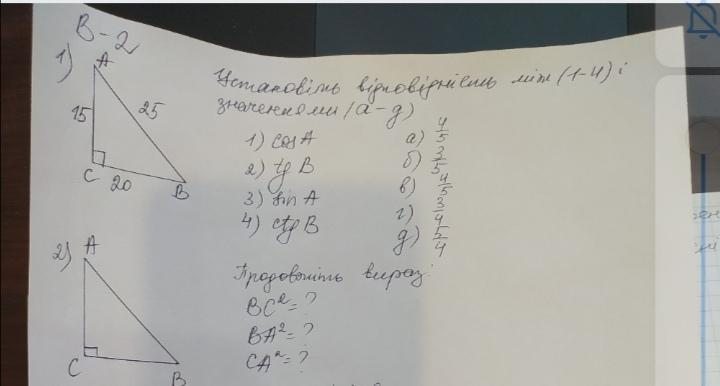 В-2
1) A
15
25
C
20
B
Установіть відповідність між (1-4) і
значеннями (а-д)
1) cos A
а) 4/5
2) tg B
б) 3/5
3) sin A
в) 4/5
4) ctg B
г) 3/4
д) 5/4
2) A
C
B
Продовжіть вираз:
BC² = ?
BA² = ?
CA² = ?